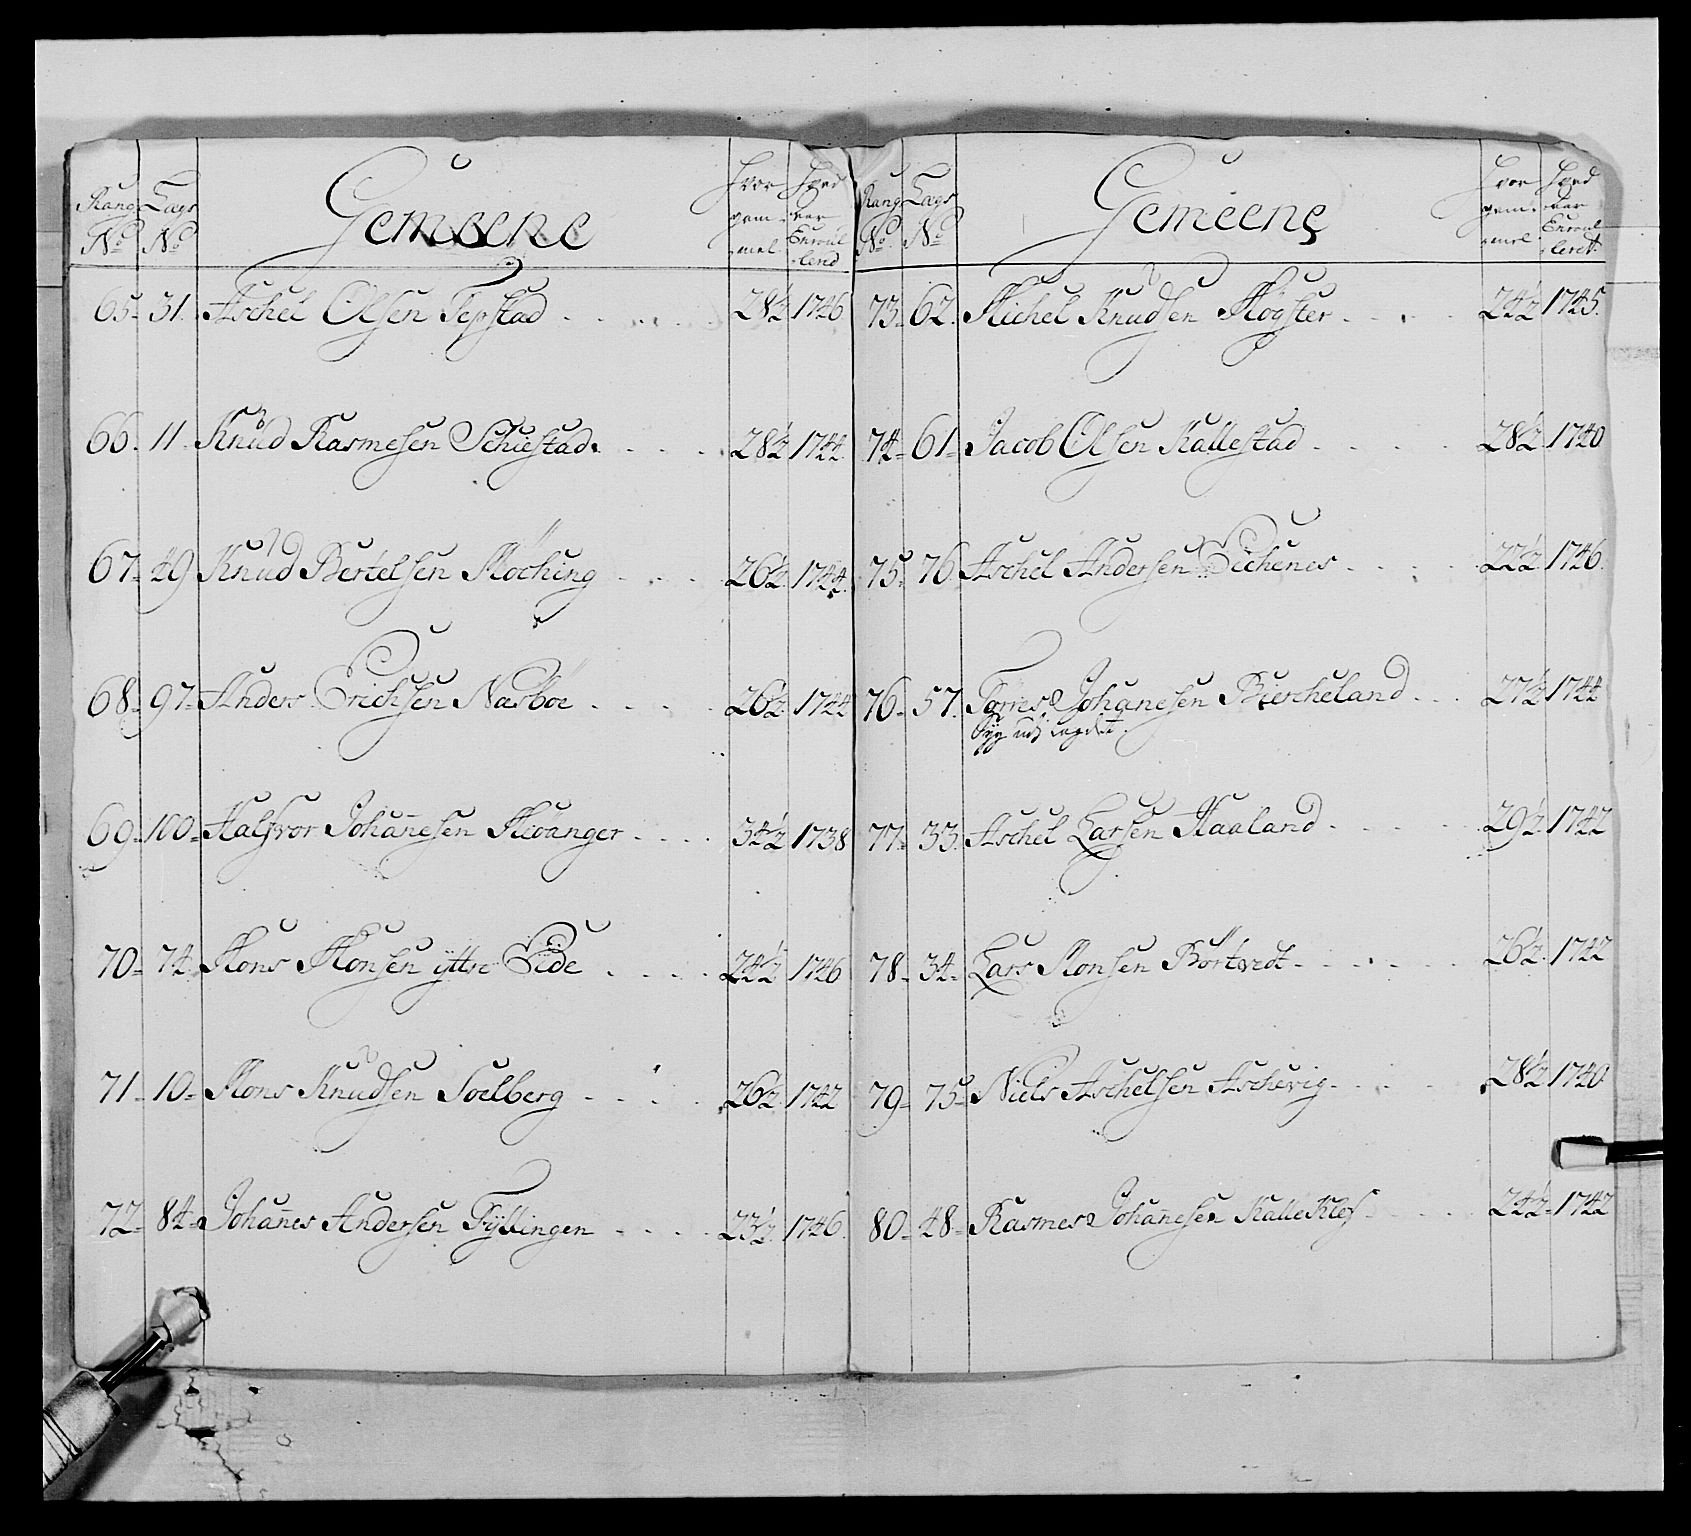 Rang No Lægs No Gemeene Hvor gam- mel Hved aar Enroul- lered
65 31 Aschel Olsen Tepstad 28½ 1746
66 11 Knud Rasmesen Schiestad 28½ 1744
67 49 Knud Bertelsen Möching 26½ 1744
68 97 Anders Erichsen Nasböe 26½ 1744
69 100 Halfvor Johan̄esen Meöanger 34½ 1738
70 74 Mons Monsen yttre Eide 24½ 1746
71 10 Mons Knudsen Soelberg 26½ 1742
72 84 Johan̄es Andersen Fyllingen 23½ 1746
Rang No Lægs No Gemeene Hvor gam- mel Hved aar Enroul- leret
73 62 Michel Knudsen Mögster 24½ 1745
74 61 Jacob Olsen Kallestad 28½ 1740
75 76 Aschel Andersen Eichenes 22½ 1746
76 57 Torres Johanesen Biercheland 27½ 1744
Syg udj Lægdet
77 33 Aschel Larsen Haaland 29½ 1742
78 34 Lars Monsen Börtvedt 26½ 1742
79 75 Niels Aschelsen Aschevig 28½ 1740
80 48 Rasmes Johan̄esen KalleKlef 24½ 1742